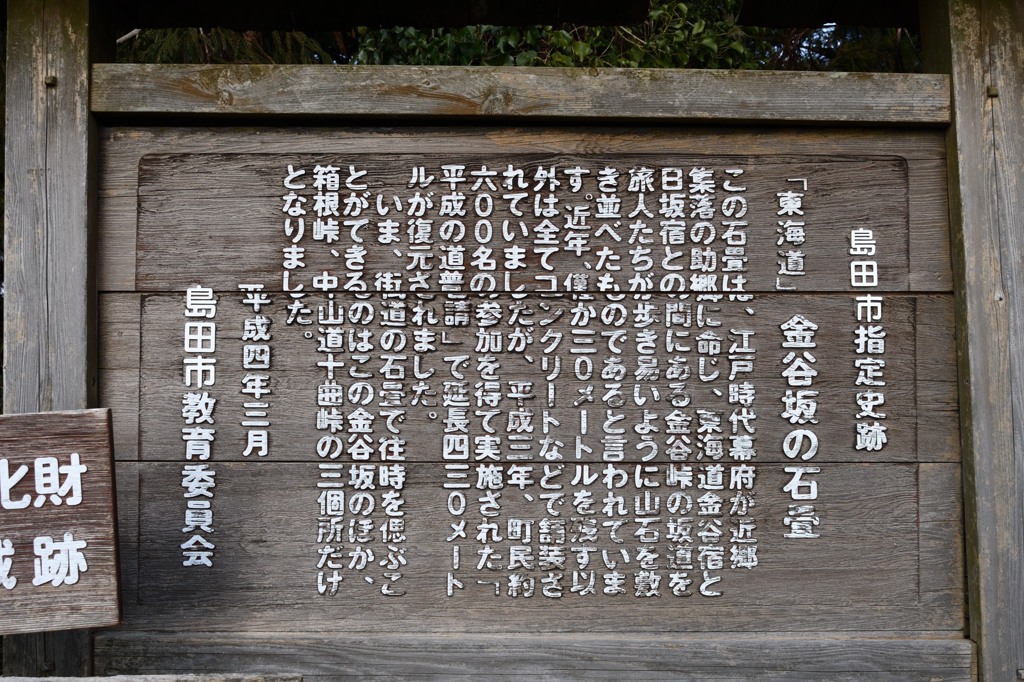 島田市指定史跡
「東海道」 金谷坂の石畳
この石畳は、江戸時代幕府が近郷
集落の助郷に命じ、東海道金谷宿と
日坂宿との間にある金谷峠の坂道を
旅人たちが歩き易いように山石を敷
き並べたものであると言われていま
す。近年、僅か三〇メートルを残す以
外は全てコンクリートなどで舗装さ
れていましたが、平成三年、町民約
六〇〇名の参加を得て実施された「
平成の道普請」で延長四三〇メート
ルが復元されました。
いま、街道の石畳で往時を偲ぶこ
とができるのはこの金谷坂のほか、
箱根峠、中山道十曲峠の三個所だけ
となりました。
平成四年三月
島田市教育委員会
化財
跡